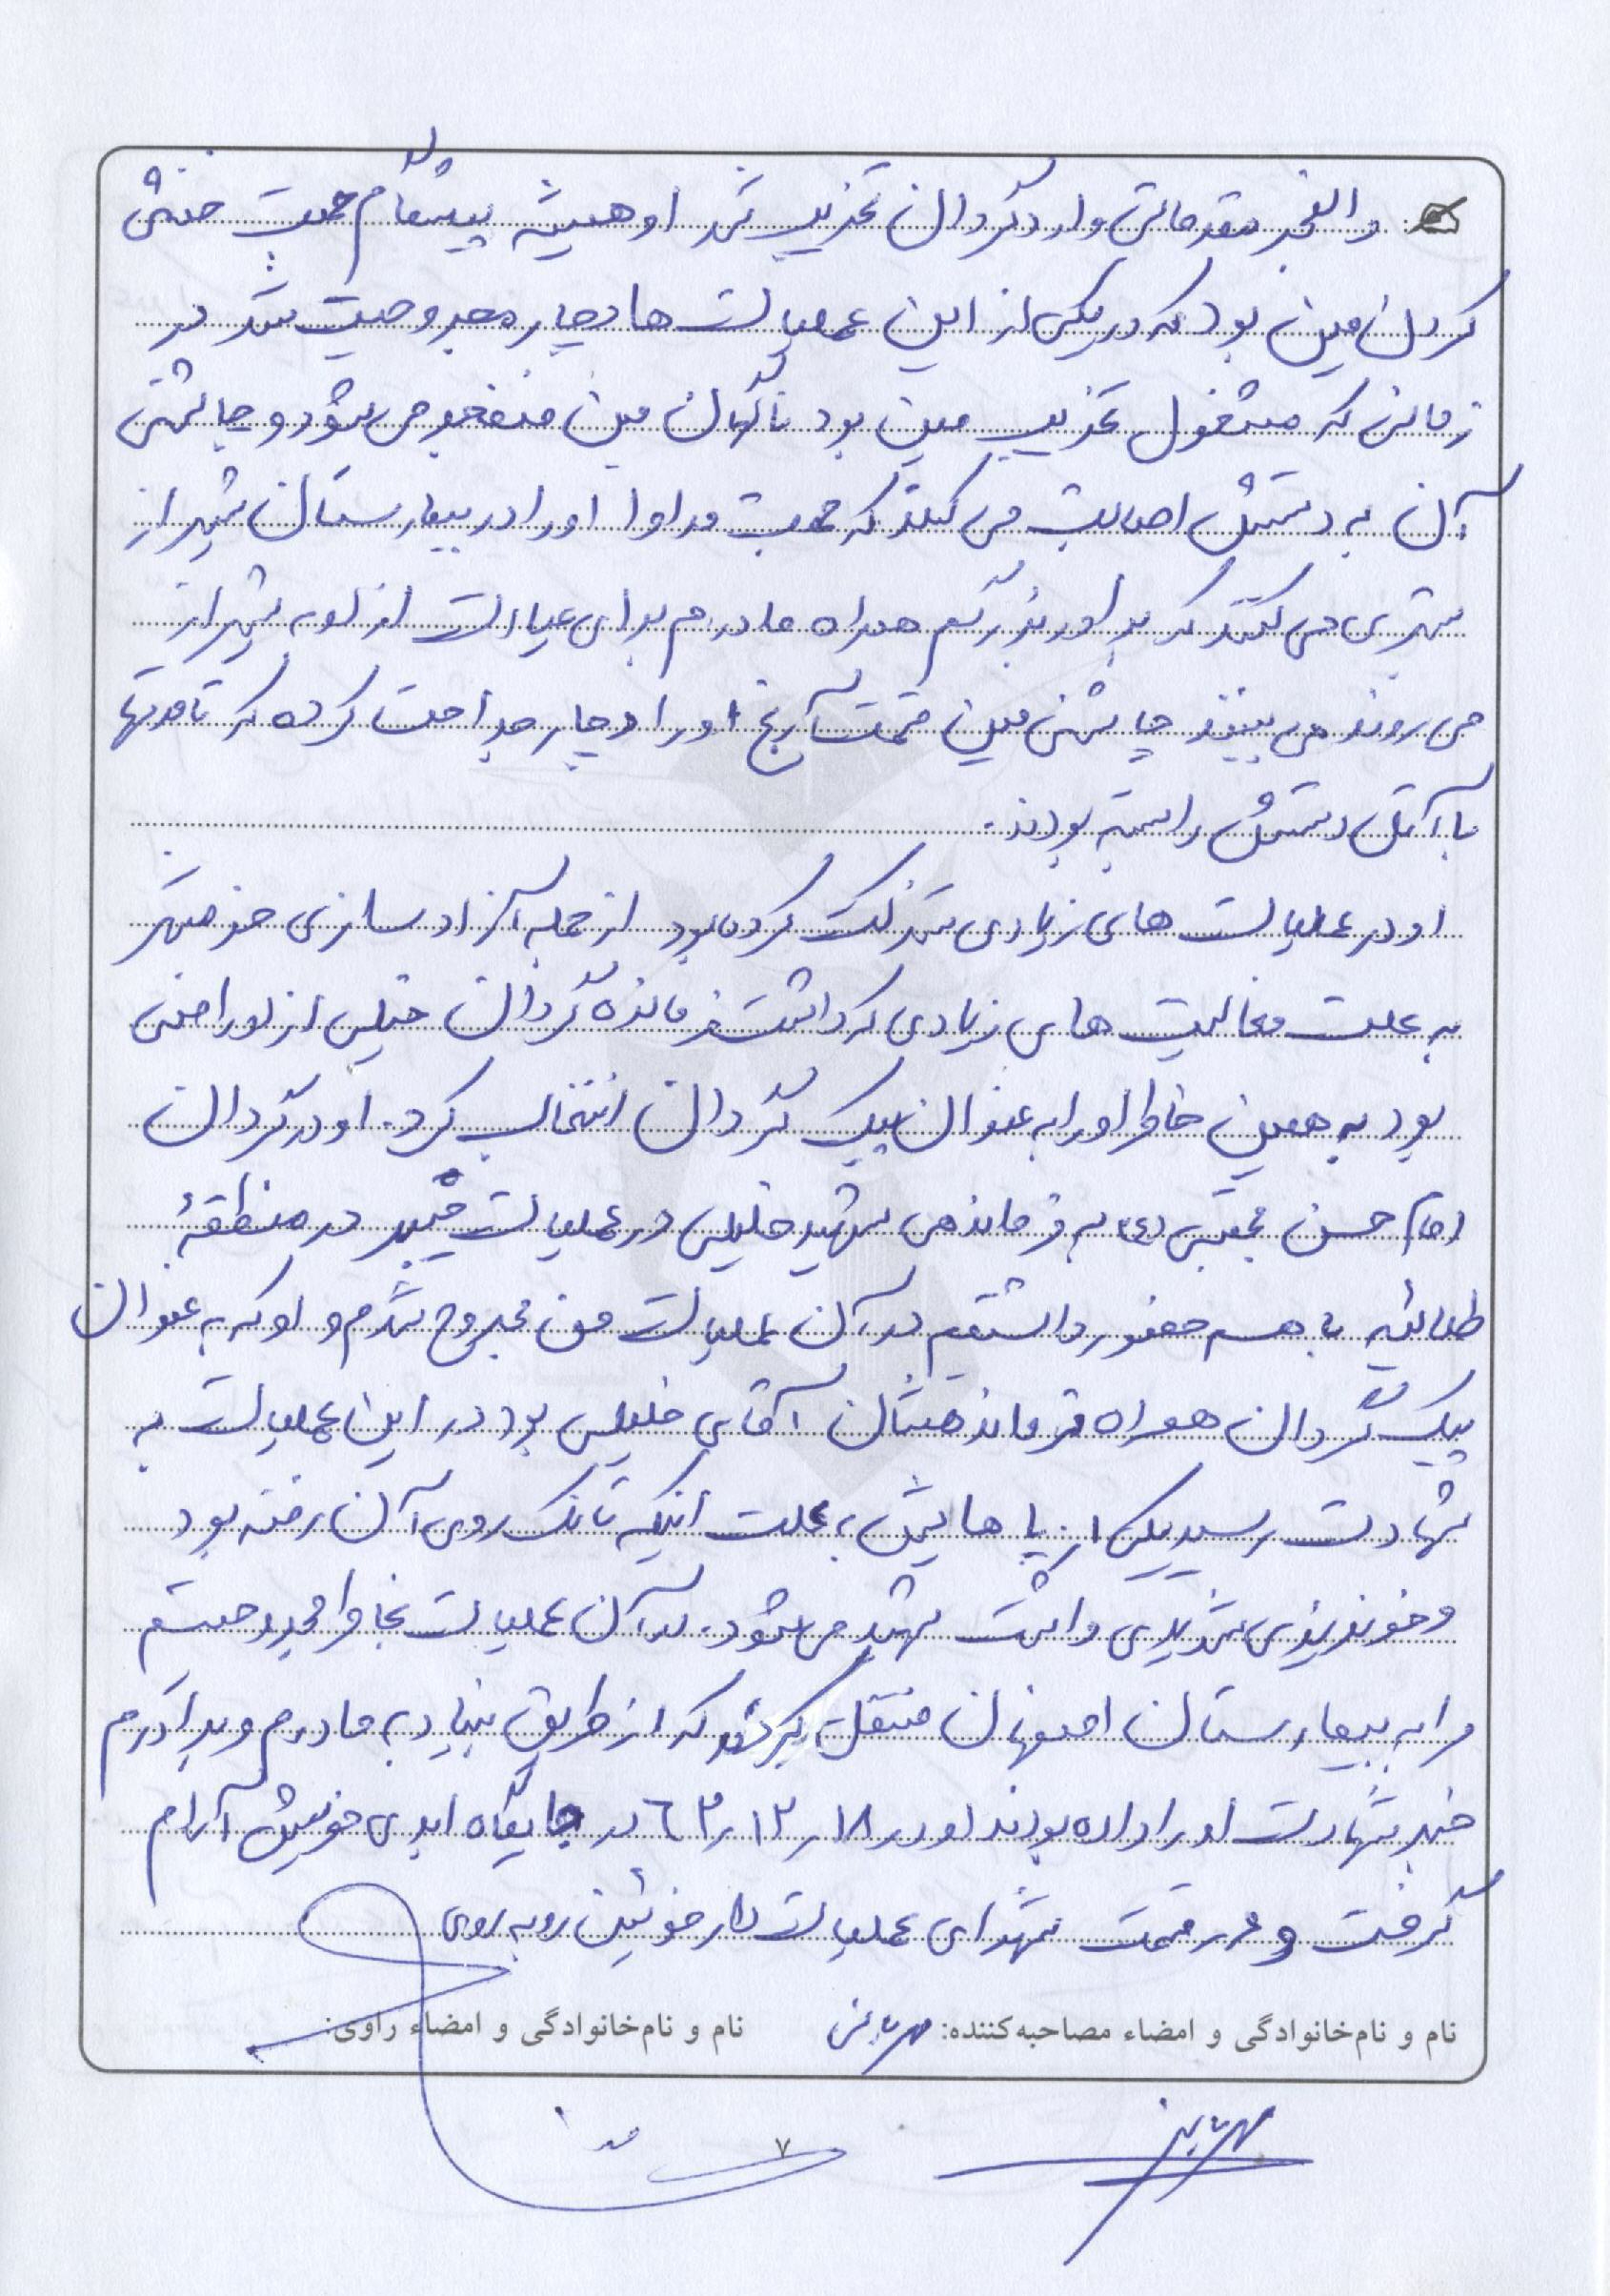 والفجر مقدماتی وارد گردان تخریب شد او همیشه پیشگام جهت خنثی
کردن مین بود که در یکی از این عملیات ها دچار مجروحیت شد در
زمانی که مشغول تخریب مین بود ناگهان مین منفجر می شود و چاشنی
آن به دستش اصابت می کند که جهت مداوا او را در بیمارستان شیراز
بستری می کنند که برادر بزرگم همراه مادرم برای عیادت از او به شیراز
می روند می بینند چاشنی مین قسمت آرنج او را دچار جراحت کرده که تا مدتها
با آتل دستش را بسته بودند.
او در عملیات های زیادی شرکت کرده بود از جمله آزاد سازی خرمشهر
به علت فعالیت های زیادی که داشت فرمانده گردان خیلی از او راضی
بود به همین خاطر او را به عنوان پیک گردان انتخاب کرد. او در گردان
امام حسن مجتبی (ع) به فرماندهی شهید خلیلی در عملیات خیبر در منطقهٔ
طلائیه با هم حضور داشتیم در آن عملیات من مجروح شدم و او که به عنوان
پیک گردان همراه فرماندهشان آقای خلیلی بود در این عملیات به
شهادت رسید یکی از پا هایش به علت اینکه تانک روی آن رفته بود
و خونریزی شدیدی داشت شهید می شود. در آن عملیات بخاطر مجروحیتم
مرا به بیمارستان اصفهان منتقل کردند که از طریق بنیاد به مادرم و برادرم
خبر شهادت او را داده بودند او در ۱۸ر۱۲ر۶۲ در جایگاه ابدی خویش آرام
گرفت و در قسمت شهدای عملیات دارخوئین روبه روی
نام و نام‌خانوادگی و امضاء مصاحبه‌کننده: نام و نام‌خانوادگی و امضاء راوی:
۷